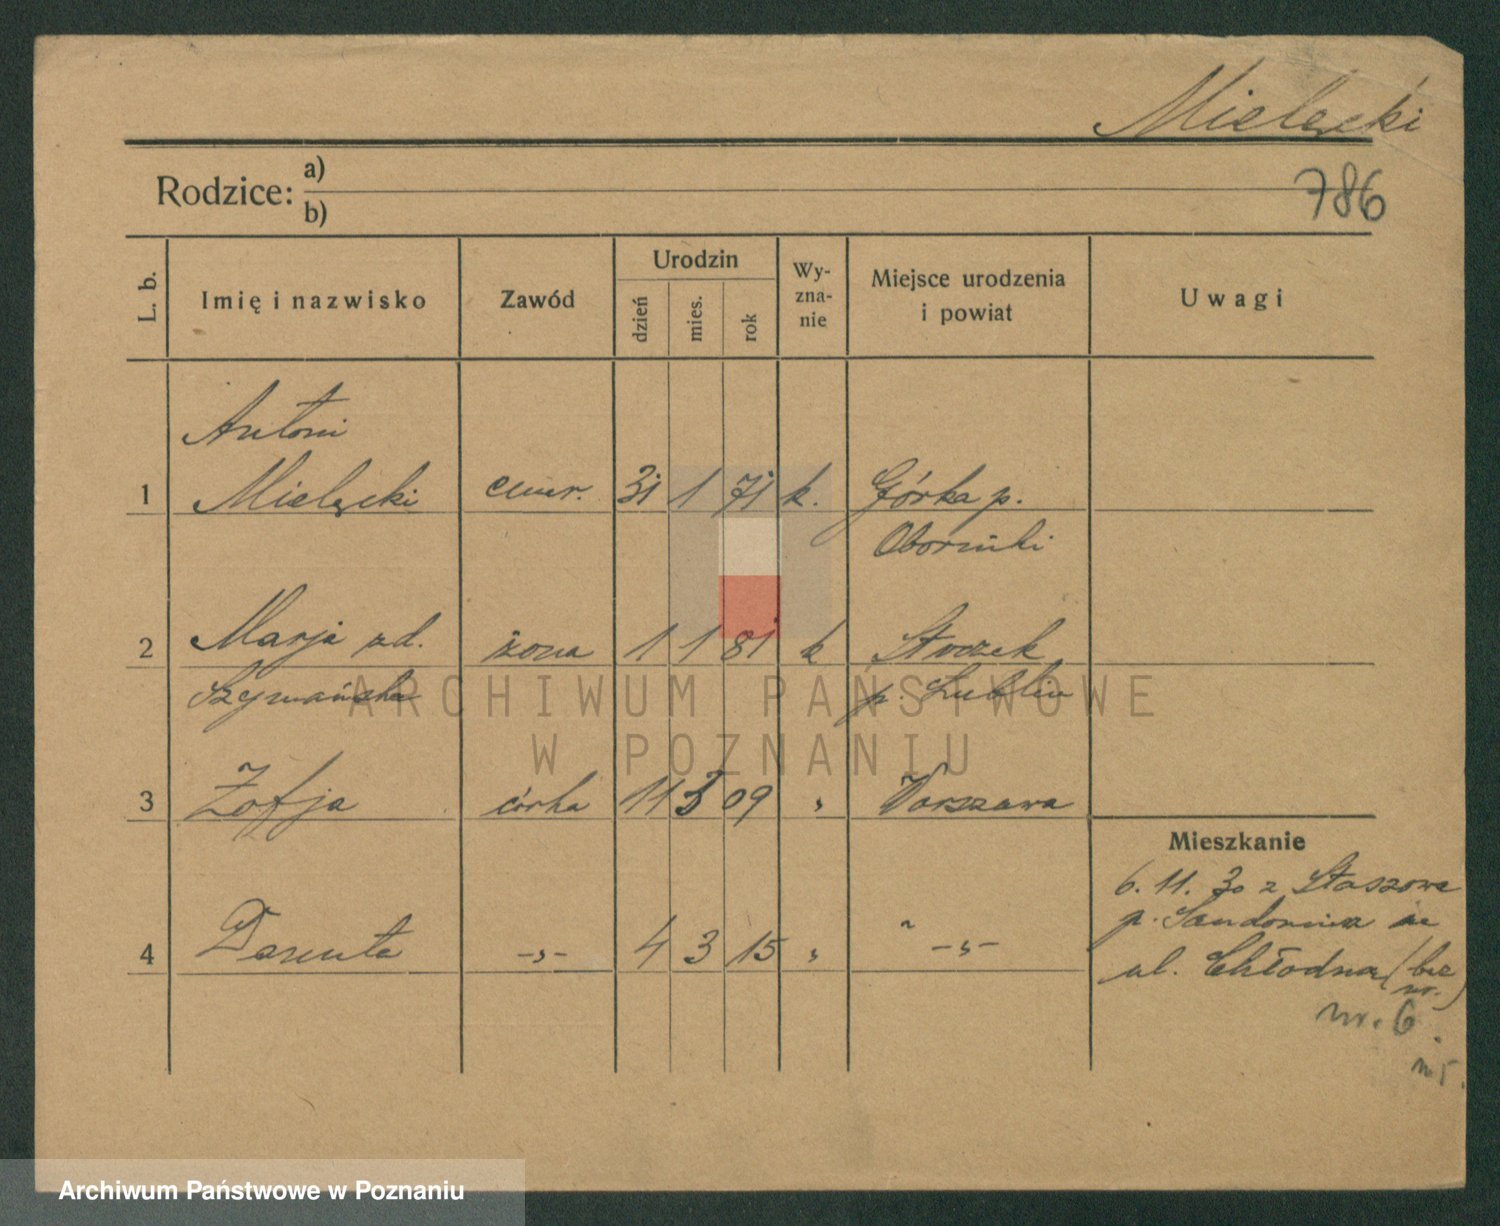 Mielęcki
Rodzice: a)
b)
786
L. b.
Imię i nazwisko
Zawód
Urodzin
dzień
mies.
rok
Wy-
zna-
nie
Miejsce urodzenia
i powiat
Uwagi
Antoni
1 Mielęcki emer. 31 1 71 k. Górka p.
Obornicki
2 Marja zd. żona 1 1 81 k Stoczek
Szymańska p. Lublin
3 Zofja córka 11 3 09 " Warszawa
Mieszkanie
6. 11. 30 z Staszowa
p. Sandomierz na
4 Danuta -"- 4 3 15 " -"-
ul. Chłodna (bez
nr.)
nr. 6
ARCHIWUM PAŃSTWOWE
W POZNANIU
Archiwum Państwowe w Poznaniu